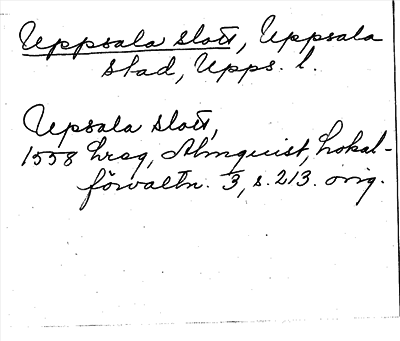 Uppsala slott, Uppsala
stad, Upps. l.
Upsala slott,
1558 hrsg, Almquist, Lokal-
förvaltn. 3, s. 213. orig.